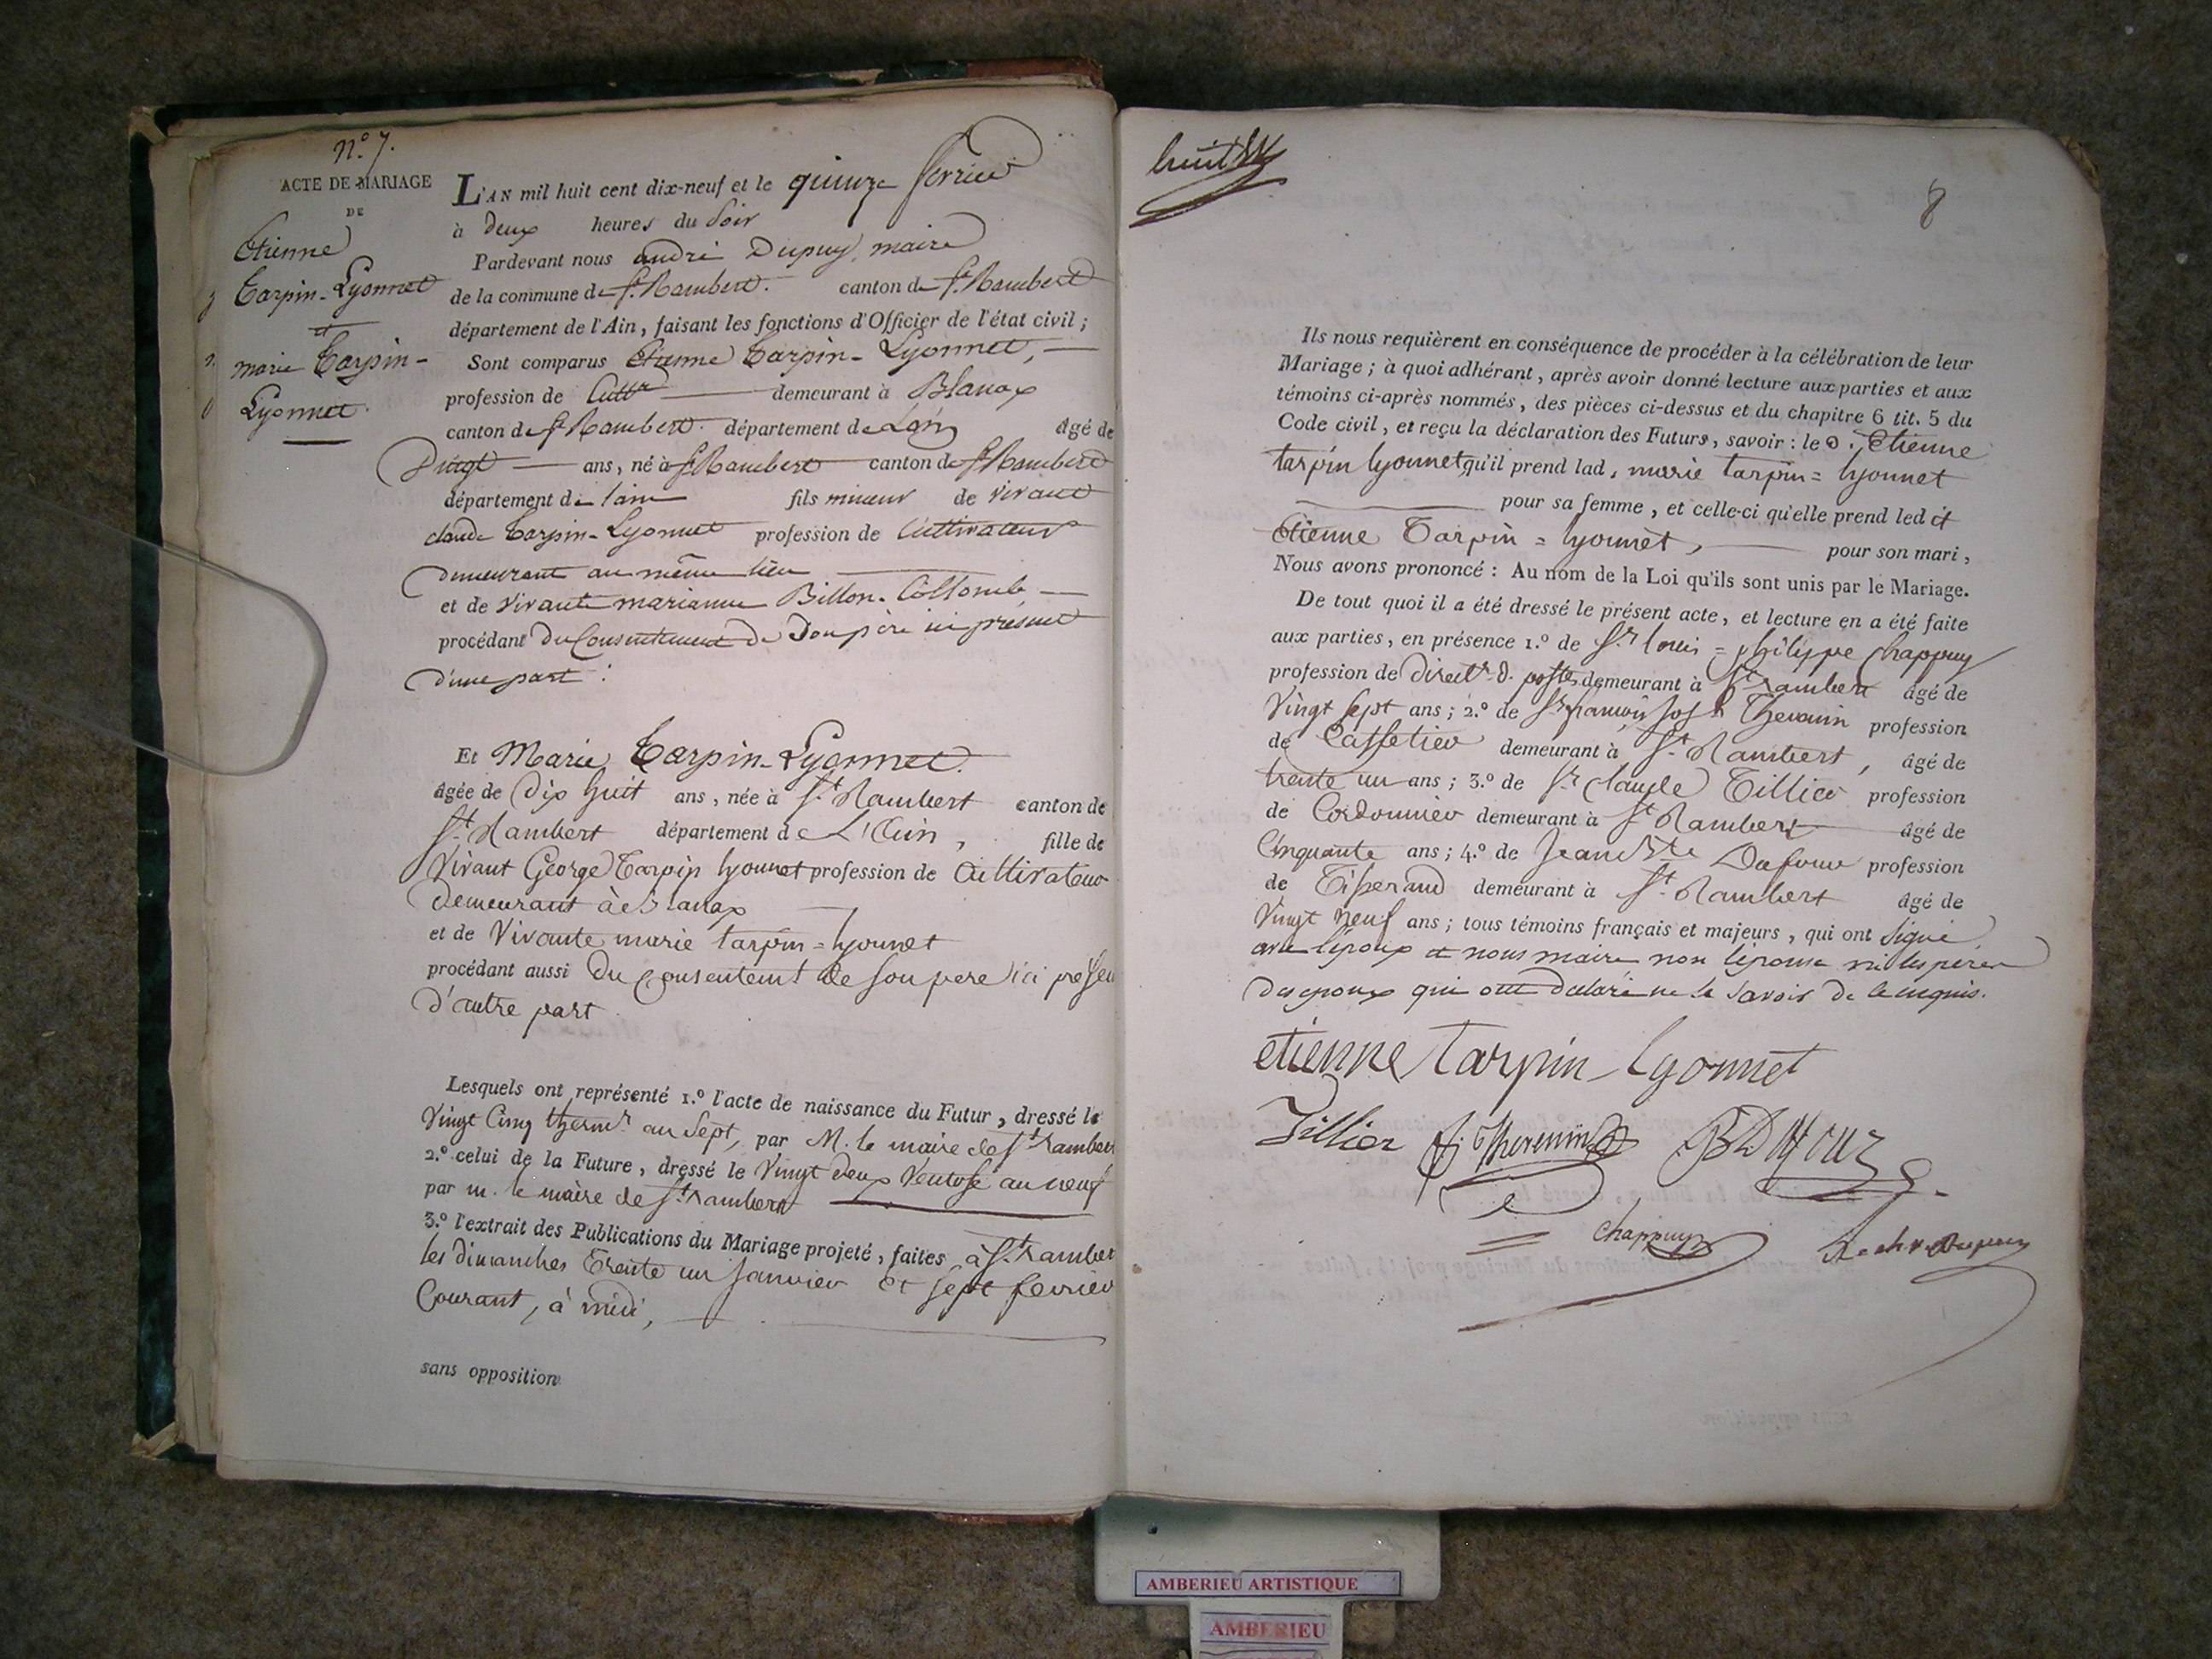 N.° 7.
ACTE DE MARIAGE
DE
Etienne
Tarpin-Lyonnet
et
marie Tarpin-
Lyonnet.
L'AN mil huit cent dix-neuf et le quinze fevrier
à deux heures du Soir
Pardevant nous andré Dupuy, maire
de la commune de St. Rambert. canton de St. Rambert
département de l'Ain, faisant les fonctions d'Officier de l'état civil;
Sont comparus Etienne Tarpin-Lyonnet,
profession de Cultr demeurant à Blanax
canton de St Rambert. département de L'ain âgé de
Vingt ans, né à St Rambert canton de St Rambert
département de l'ain fils mineur de vivant
claude Tarpin-Lyonnet profession de Cultivateur
demeurant au même lieu
et de vivante marianne Billon-Collomb
procédant du Consentement de Son père ici présent
d'une part :
Et Marie Tarpin-Lyonnet.
âgée de Dix huit ans, née à St Rambert canton de
St Rambert département de L'Ain, fille de
Vivant George Tarpin lyonnet profession de Cultivateur
Demeurant à Blanax
et de Vivante marie tarpin=lyonnet
procédant aussi Du Consentemt de Son pere ici présen
D'autre part
Lesquels ont représenté 1.° l'acte de naissance du Futur, dressé le
Vingt Cinq thermr an Sept, par M. le maire de St rambert
2.° celui de la Future, dressé le Vingt deux Ventose an neuf
par m. le maire de St rambert
3.° l'extrait des Publications du Mariage projeté, faites à St rambert
les dimanches Trente un Janvier et Sept fevrier
Courant, à midi,
sans opposition
huit
8
Ils nous requièrent en conséquence de procéder à la célébration de leur
Mariage; à quoi adhérant, après avoir donné lecture aux parties et aux
témoins ci-après nommés, des pièces ci-dessus et du chapitre 6 tit. 5 du
Code civil, et reçu la déclaration des Futurs, savoir : le d. Etienne
tarpin lyonnet qu'il prend lad. marie tarpin=lyonnet
pour sa femme, et celle-ci qu'elle prend led it
Etienne Tarpin=lyonnet, pour son mari,
Nous avons prononcé : Au nom de la Loi qu'ils sont unis par le Mariage.
De tout quoi il a été dressé le présent acte, et lecture en a été faite
aux parties, en présence 1.° de Sr louis=philippe Chappuy
profession de Directr D. postes demeurant à St rambert âgé de
Vingt Sept ans; 2.° de Sr françois Josh Thevenin profession
de Caffetier demeurant à St Rambert, âgé de
trente un ans; 3.° de Sr Claude Tillier profession
de Cordonnier demeurant à St Rambert âgé de
Cinquante ans; 4.° de Jean Bte Dufour profession
de Tisserand demeurant à St Rambert âgé de
Vingt neuf ans; tous témoins français et majeurs, qui ont Signé
avec l'époux et nous maire non l'épouse ni les pères
des epoux qui ont déclaré ne le Savoir De ce enquis.
etienne tarpin-lyonnet
Tillier f. Thevenin BDufour
Chappuy Dupuy
AMBERIEU ARTISTIQUE
AMBERIEU